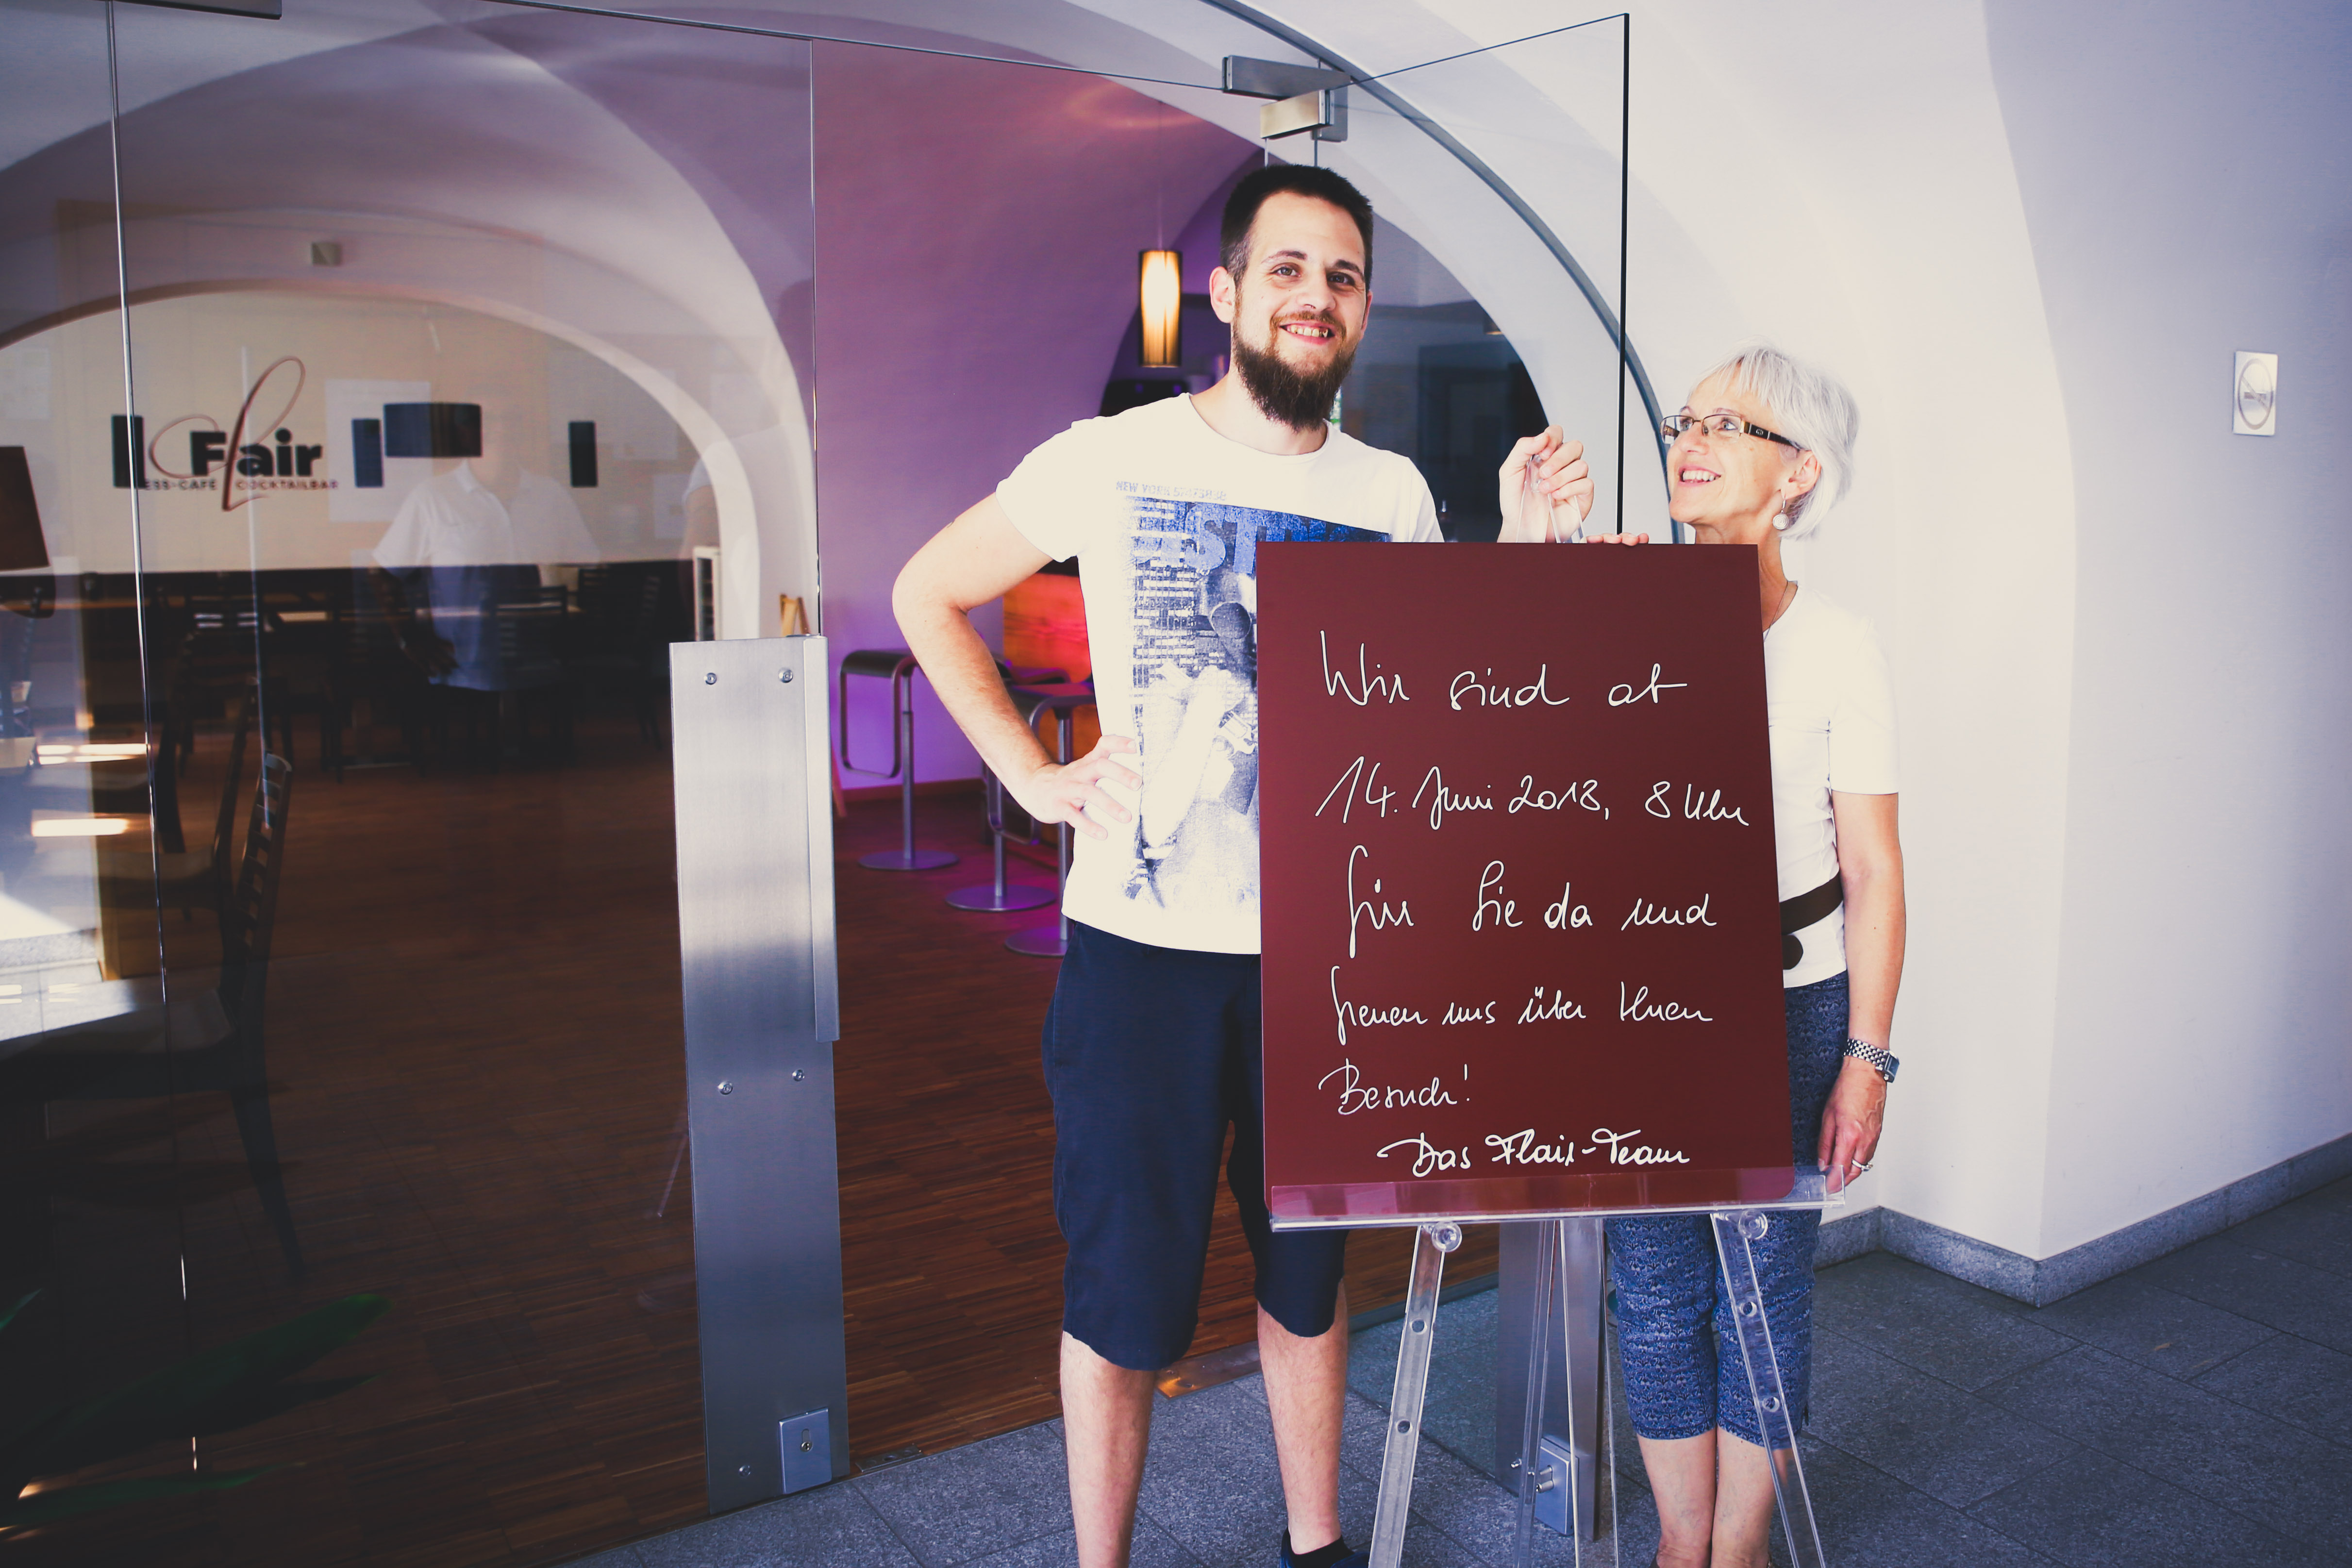 Flair
ESS-CAFÉ COCKTAILBAR
NEW YORK
Wir sind ab
14. Juni 2018, 8 Uhr
für Sie da und
freuen uns über Ihren
Besuch!
Das Flair-Team